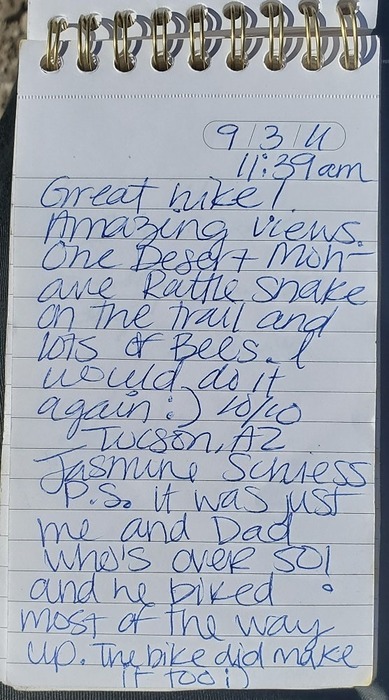 9/3/11
11:39am
Great hike!
Amazing views.
One Desert Moh-
ave Rattle Snake
on the trail and
lots of Bees. I
would do it
again :) 10/10
Tucson, AZ
Jasmine Schiess
P.S. it was just
me and Dad
who's over 50!
and he biked
most of the way
up. The bike did make
it too :)